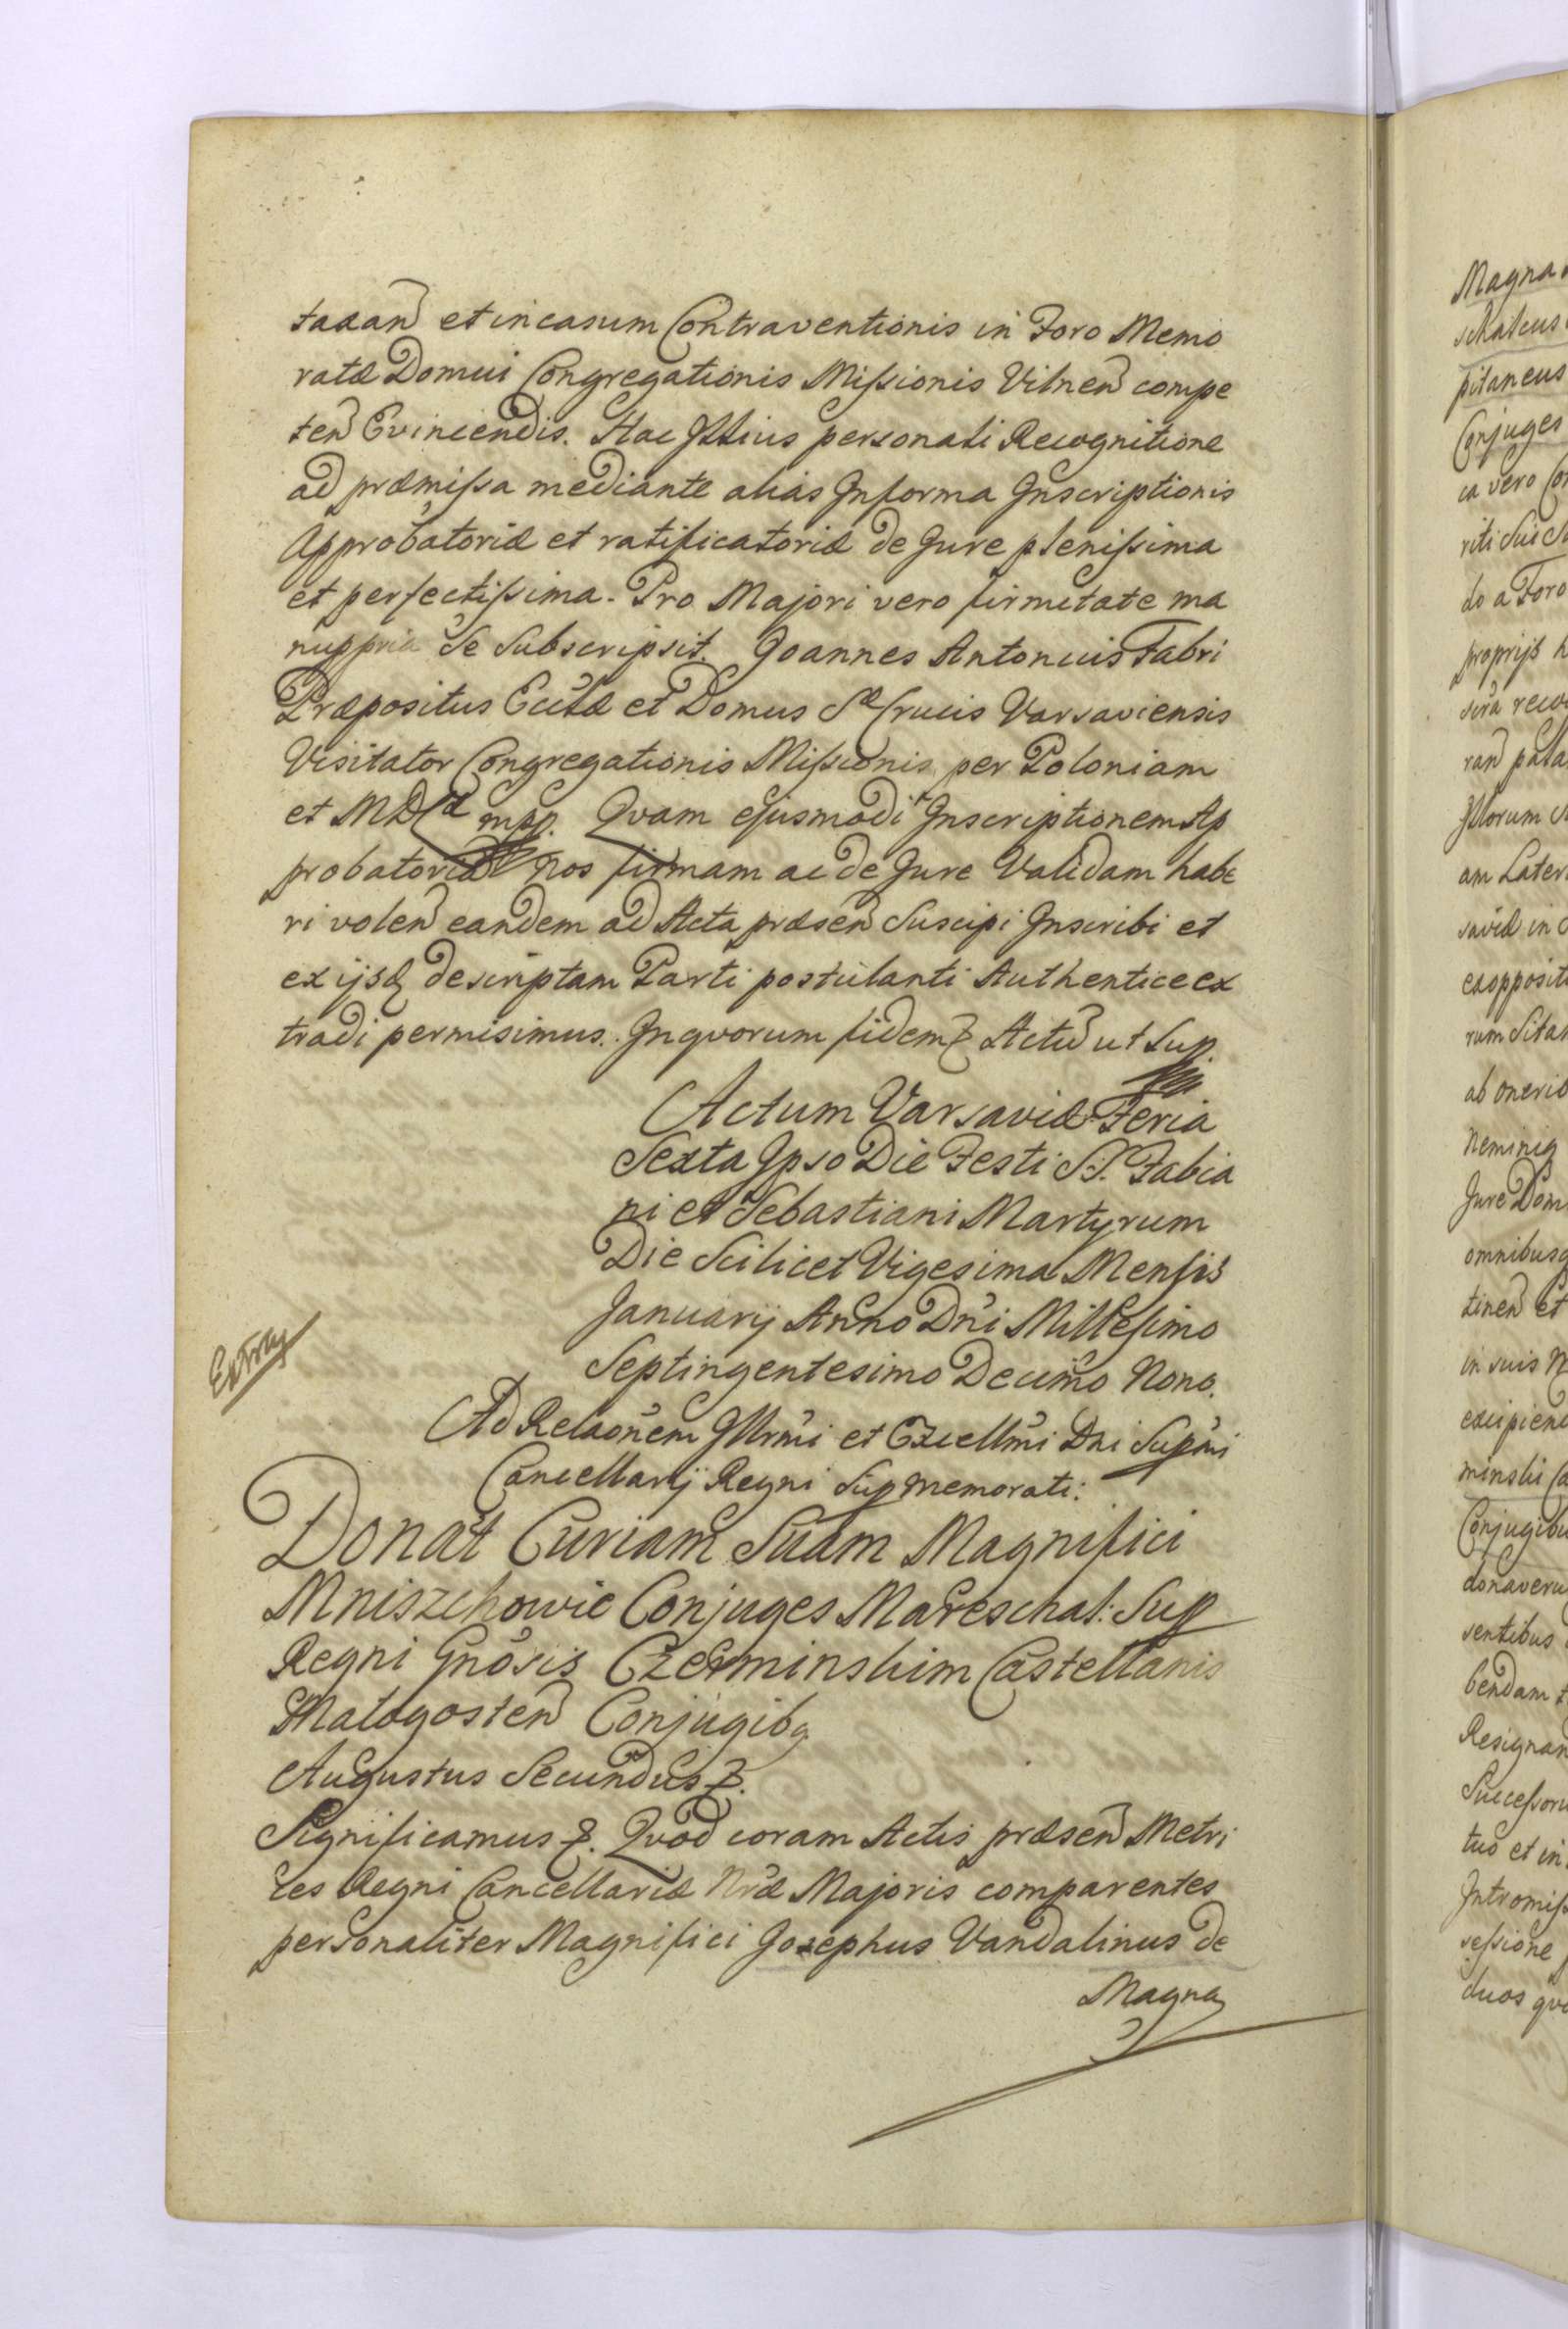 taxan̄ et in casum Contraventionis in Foro Memo
ratæ Domui Congregationis Missionis Vilnen̄ compe
ten̄ Evincendis. Hac Illius personali Recognitione
ad præmissa mediante alias In forma Inscriptionis
Approbatoriæ et ratificatoriæ de Jure plenissima
et perfectissima. Pro Majori vero firmitate ma
nuppria Se Subscripsit. Joannes Antonius Fabri
Præpositus Eccłæ et Domus Sæ Crucis Varsaviensis
Visitator Congregationis Missionis per Poloniam
et MDL mpp. Quam ejusmodi Inscriptionem Ap
probatoriā Nos firmam ac de Jure Validam habe
ri volen̄ eandem ad Acta præsen̄ Suscipi Inscribi et
ex ijsq descriptam Parti postulanti Authentice ex
tradi permisimus. In quorum fidem & Actū ut Sup.
Actum Varsaviæ Feria
Sexta Ipso Die Festi S.S. Fabia
ni et Sebastiani Martyrum
Die Scilicet Vigesima Mensis
Januarij Anno Dn̄i Millesimo
Septingentesimo Decimo Nono.
Extray
Ad Relaōnem Illrmi et Excellmi Dni Supmi
Cancellarij Regni Sup memorati:
Donat Curiam Suam Magnifici
Mniszchowie Conjuges Mareschal: Sup
Regni Gnōsis Czerminskim Castellanis
Malogosten̄ Conjugibq
Augustus Secundus &.
Significamus &. Quod coram Actis præsen̄ Metri
ces Regni Cancellariæ Nr̄æ Majoris comparentes
personaliter Magnifici Josephus Vandalinus de
Magna
Magna
schalcus
pitaneus
Conjuges
ca vero
riti Sui
do a Foro
proprijs
ab oneri
Jure Dom
omnibusq
tinen̄ et
in suis
minski
Conjugibu
donaveru
ventibus
bendam
Resignan
Successor
tuo et in
Intromis
sessione
duos